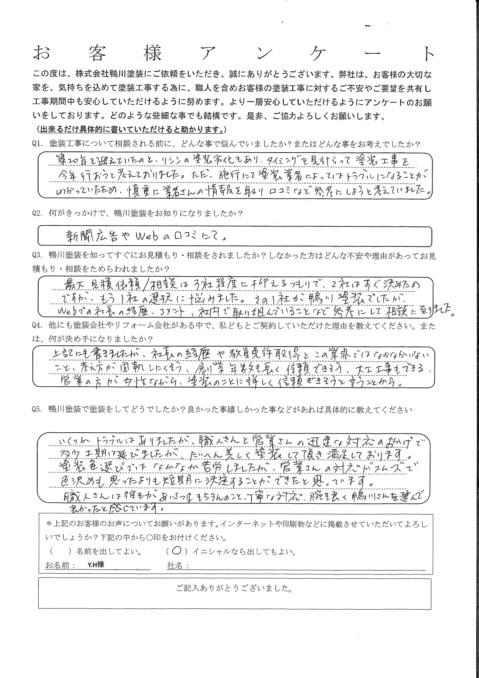 お客様アンケート
この度は、株式会社鴨川塗装にご依頼をいただき、誠にありがとうございます。弊社は、お客様の大切な
家を、気持ちを込めて塗装工事する為に、職人を含めお客様の塗装工事に対するご不安やご要望を共有し
工事期間中も安心していただけるように努めます。より一層安心していただけるようにアンケートのお願
いをしております。どのような些細な事でも結構です。是非、ご協力よろしくお願いします。
（出来るだけ具体的に書いていただけると助かります。）
Q1. 塗装工事について相談される前に、どんな事で悩んでいましたか？またはどんな事をお考えでしたか？
築20年を越えていたのと、リシンの塗装劣化もあり、タイミングを見計らって塗装工事を
今年行おうと考えておりました。ただ、施行にて塗装業者によってはトラブルになることが
わかっていたため、慎重に業者さんの情報を取り口コミなど参考にしようと考えていました。
Q2. 何がきっかけで、鴨川塗装をお知りになりましたか？
新聞広告やWebの口コミにて。
Q3. 鴨川塗装を知ってすぐにお見積もり・相談をされましたか？しなかった方はどんな不安や理由があってお見
積もり・相談をためらわれましたか？
最大見積依頼/相談は3社程度に抑えるつもりで、2社はすぐ決めたの
ですが、もう1社の選択に悩みました。その1社が鴨川塗装でしたが、
Webでの社長の経歴、コメント、社内で取り組んでいることなど参考にして相談に至りました。
Q4. 他にも塗装会社やリフォーム会社がある中で、私どもとご契約していただけた理由を教えてください。また
は、何が決め手になりましたか？
上記にも書きましたが、社長の経歴や教員免許取得とこの業界ではなかなかいない
こと、考え方が固執してなくそう、創業年数も長く信頼できそう、大工工事もできる、
営業の方が女性ながら、塗装のことに詳しく信頼できそうと言うことから。
Q5. 鴨川塗装で塗装をしてどうでしたか？良かった事嬉しかった事などがあれば具体的に教えてください
いくつかトラブルはありましたが、職人さんと営業さんの迅速な対応のおかげで
多少工期は延びましたが、たいへん美しく塗装して頂き満足しております。
塗装色選びではなかなか苦労しましたが、営業さんの対応がスムーズで
色決めも思ったよりも短期に決定することができたと思っています。
職人さんは誰もがあいさつはもちろんのこと、丁寧な対応、腕も良く鴨川さんを選んで
良かったと感じています。
※上記のお客様のお声についてお願いがあります。インターネットや印刷物などに掲載させていただいてよろし
いでしょうか？下記の中から〇印をお付けください。
（ ）名前を出してよい。 （〇）イニシャルなら出してもよい。
お名前： Y.H様 社名：
ご記入ありがとうございました。